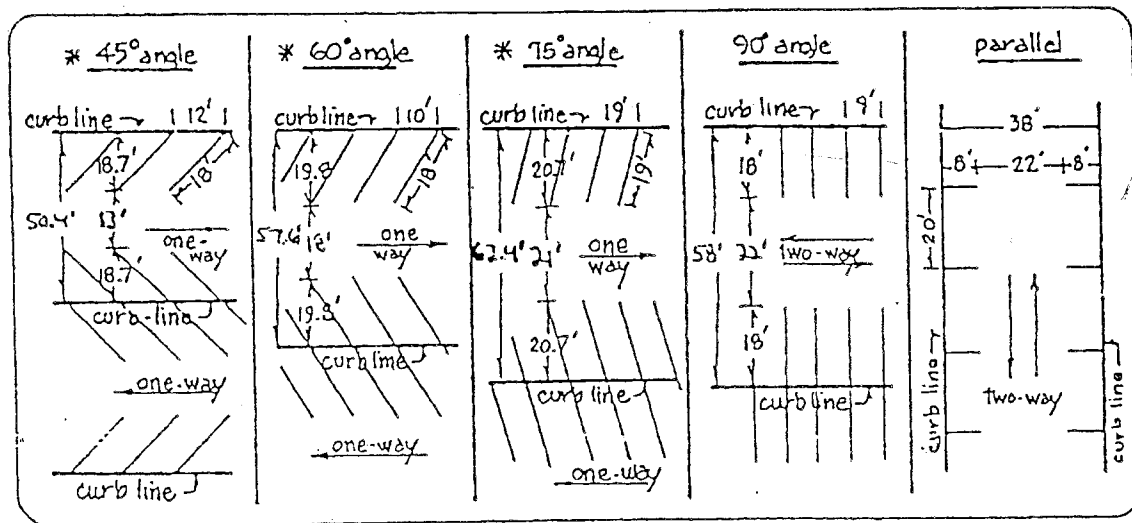 * 45° angle
curb line
12'
18.7'
18'
50.4'
13'
one-way
18.7'
curb-line
one-way
curb line
* 60° angle
curb line
10'
19.8'
18'
57.6'
18'
one way
19.8'
curb line
one-way
* 75° angle
curb line
9'
20.7'
19'
62.4'
21'
one way
20.7'
curb line
one-way
90° angle
curb line
9'
18'
58'
22'
two-way
18'
curb line
parallel
38'
8'
22'
8'
20'
curb line
two-way
curb line